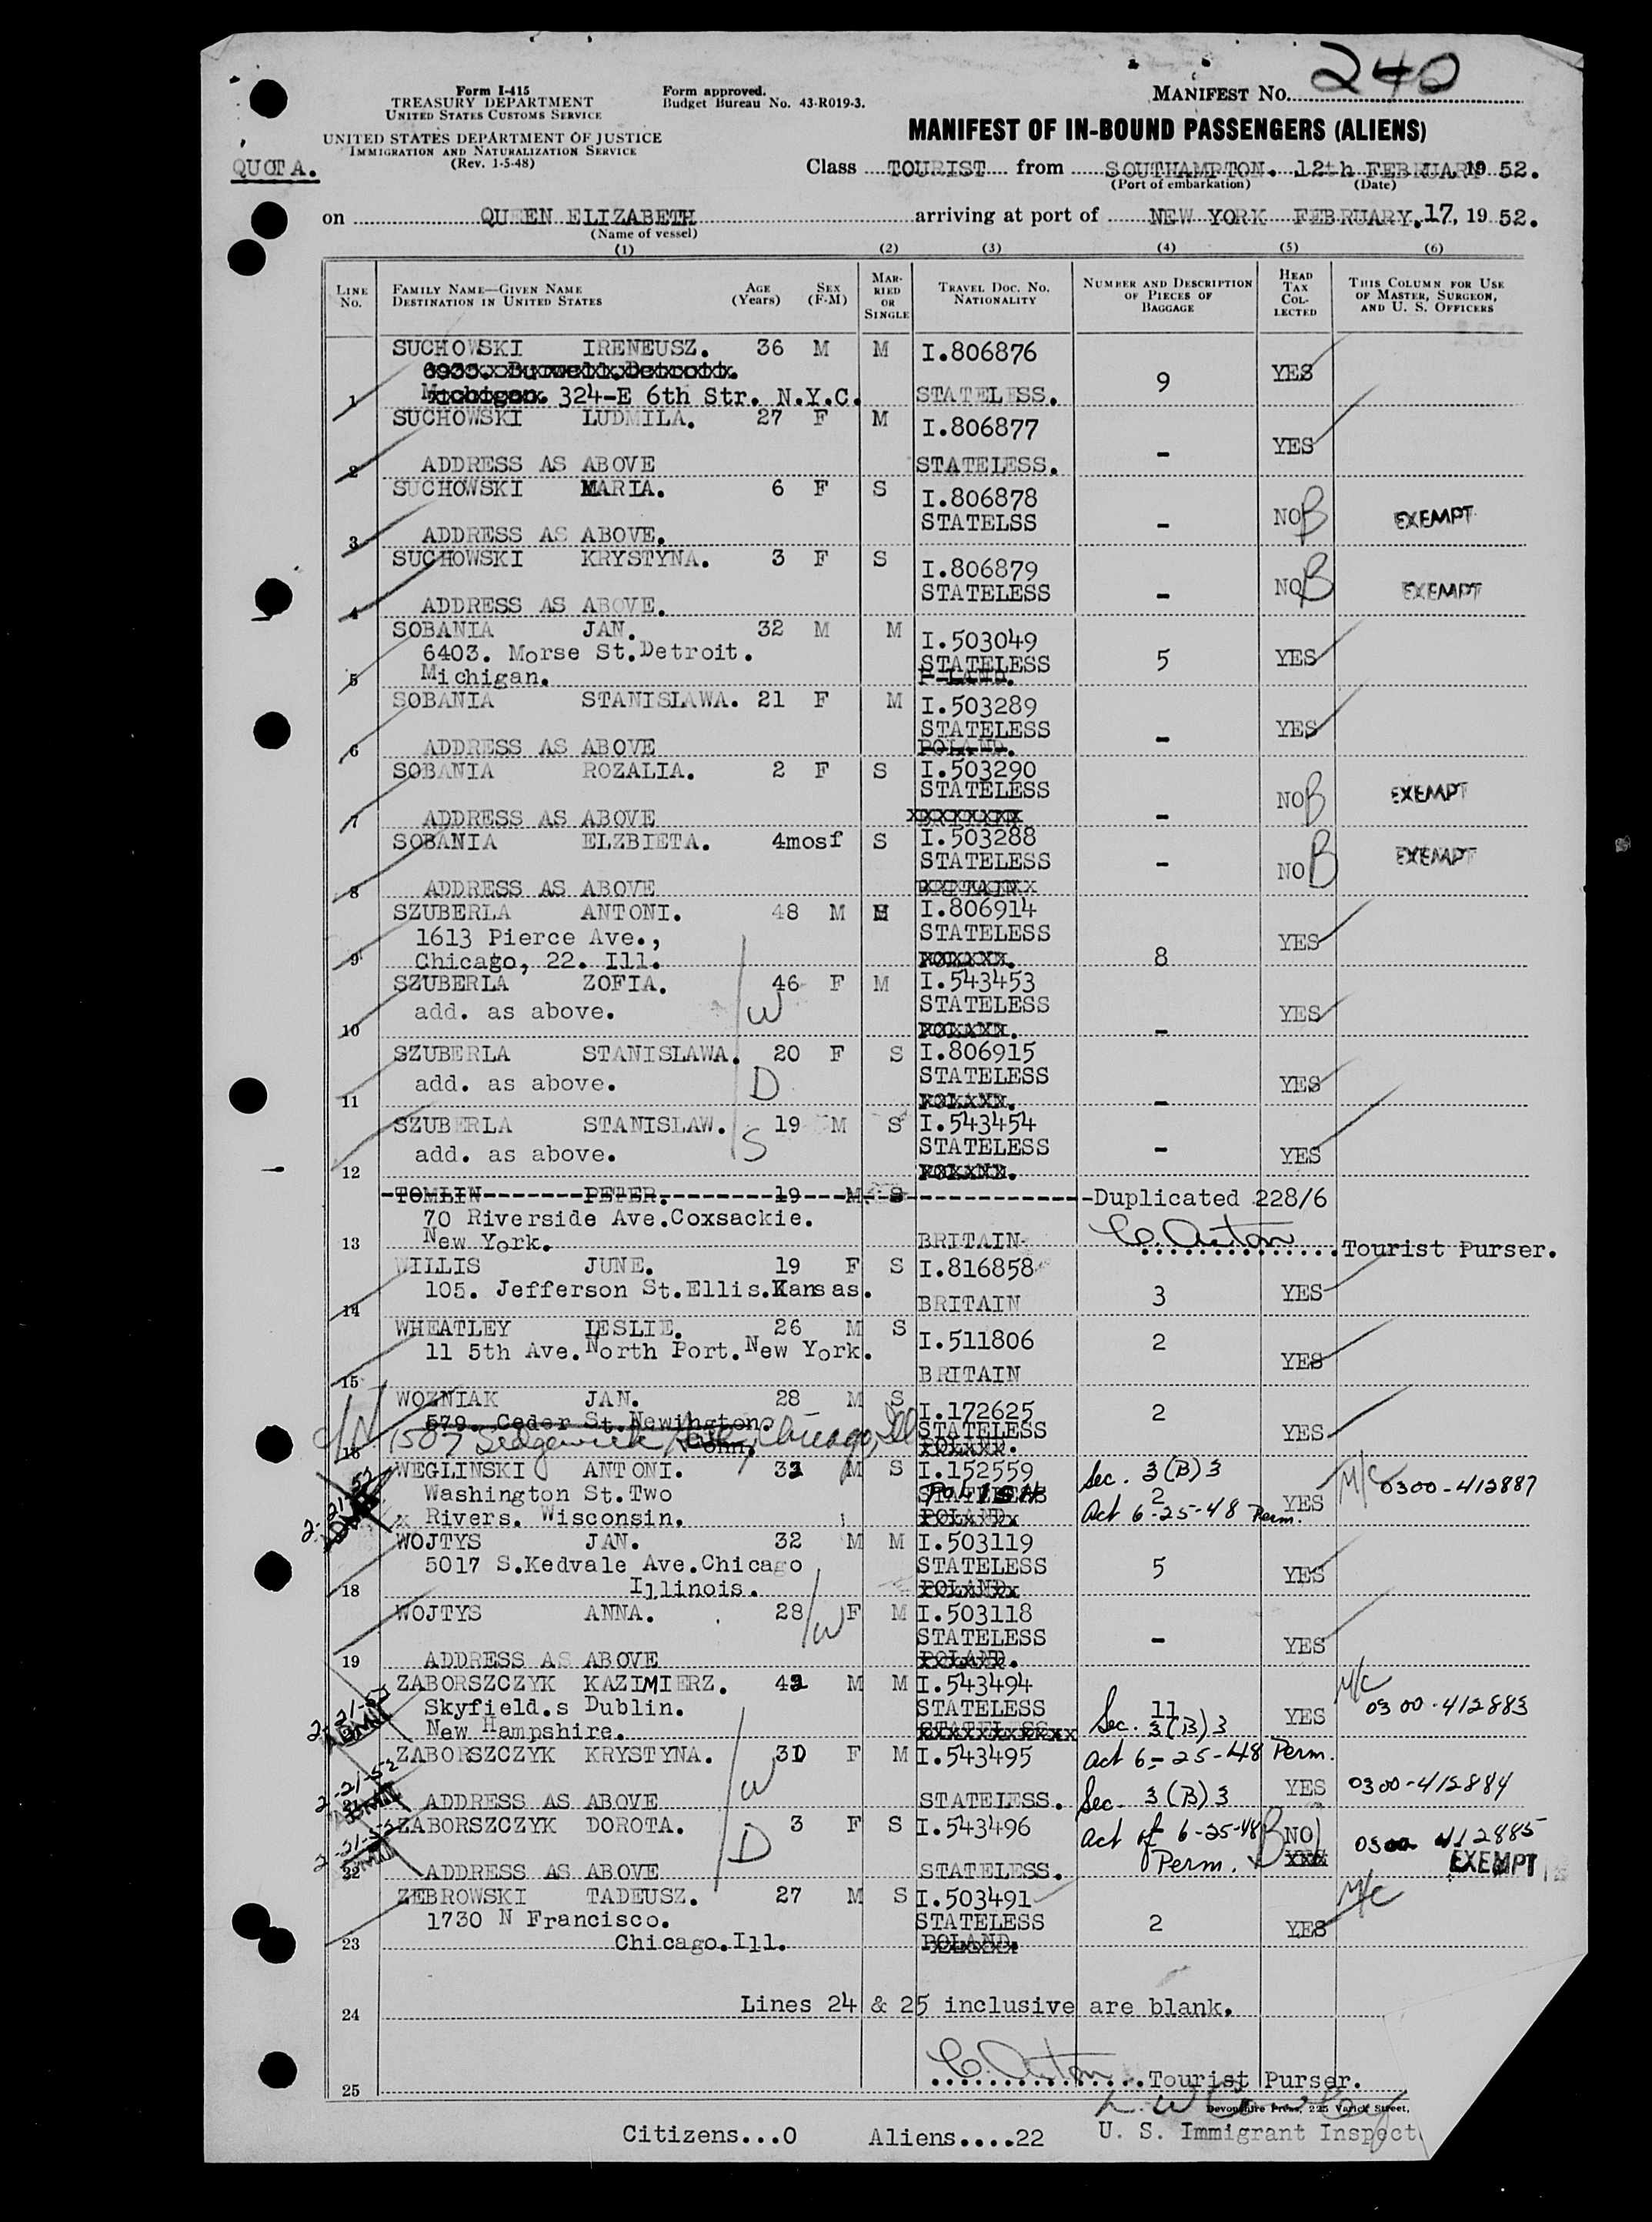 240
Form I-415
TREASURY DEPARTMENT
UNITED STATES CUSTOMS SERVICE
UNITED STATES DEPARTMENT OF JUSTICE
IMMIGRATION AND NATURALIZATION SERVICE
(Rev. 1-5-48)
Form approved.
Budget Bureau No. 43-R019-3.
MANIFEST No.
MANIFEST OF IN-BOUND PASSENGERS (ALIENS)
QUOTA.
Class TOURIST from SOUTHAMPTON. 12th FEBRUARY 19 52.
(Port of embarkation) (Date)
on QUEEN ELIZABETH arriving at port of NEW YORK FEBRUARY.17, 19 52.
(Name of vessel)
(1) (2) (3) (4) (5) (6)
LINE No. FAMILY NAME—GIVEN NAME DESTINATION IN UNITED STATES AGE (Years) SEX (F-M) MARRIED OR SINGLE TRAVEL DOC. NO. NATIONALITY NUMBER AND DESCRIPTION OF PIECES OF BAGGAGE HEAD TAX COLLECTED THIS COLUMN FOR USE OF MASTER, SURGEON, AND U. S. OFFICERS
SUCHOWSKI IRENEUSZ. 36 M M I.806876
9 YES
1 Michigan. 324-E 6th Str. N.Y.C. STATELESS.
SUCHOWSKI LUDMILA. 27 F M I.806877
2 ADDRESS AS ABOVE STATELESS. - YES
SUCHOWSKI MARIA. 6 F S I.806878
STATELSS - NO B EXEMPT
3 ADDRESS AS ABOVE.
SUCHOWSKI KRYSTYNA. 3 F S I.806879
STATELESS - NO B EXEMPT
4 ADDRESS AS ABOVE.
SOBANIA JAN. 32 M M I.503049
6403. Morse St.Detroit. STATELESS 5 YES
5 Michigan.
SOBANIA STANISLAWA. 21 F M I.503289
STATELESS - YES
6 ADDRESS AS ABOVE POLAND.
SOBANIA ROZALIA. 2 F S I.503290
STATELESS - NO B EXEMPT
7 ADDRESS AS ABOVE XXXXXXXX
SOBANIA ELZBIETA. 4mosf S I.503288
STATELESS - NO B EXEMPT
8 ADDRESS AS ABOVE
SZUBERLA ANTONI. 48 M M I.806914
1613 Pierce Ave., STATELESS YES
9 Chicago, 22. Ill. 8
SZUBERLA ZOFIA. 46 F M I.543453
add. as above. W STATELESS YES
10 -
SZUBERLA STANISLAWA. 20 F S I.806915
add. as above. D STATELESS YES
11 -
SZUBERLA STANISLAW. 19 M S I.543454
add. as above. S STATELESS - YES
12
TOMLIN PETER. 19 M S Duplicated 228/6
70 Riverside Ave.Coxsackie.
13 New York. BRITAIN C. Aston Tourist Purser.
WILLIS JUNE. 19 F S I.816858
105. Jefferson St.Ellis.Kansas. 3 YES
14 BRITAIN
WHEATLEY LESLIE. 26 M S I.511806 2
11 5th Ave.North Port.New York. YES
15 BRITAIN
WOZNIAK JAN. 28 M S I.172625 2
579. Ceder St.Newington. STATELESS YES
16 1507 Sedgewick Ave, Chicago, Ill Conn.
WEGLINSKI ANTONI. 32 M S I.152559 Sec. 3(B)3 M/C 0300-412887
Washington St.Two STATELESS POLISH 2 YES
Rivers. Wisconsin. POLAND Act 6-25-48 Perm.
2-21-52
WOJTYS JAN. 32 M M I.503119
5017 S.Kedvale Ave.Chicago STATELESS 5 YES
18 Illinois. POLAND
WOJTYS ANNA. 28 W F M I.503118
STATELESS - YES
19 ADDRESS AS ABOVE POLAND.
ZABORSZCZYK KAZIMIERZ. 42 M M I.543494 M/C
2-21-52 Skyfield.s Dublin. STATELESS 11 YES 0300-412883
New Hampshire. STATELESS Sec. 3(B)3
ZABORSZCZYK KRYSTYNA. 30 F M I.543495 Act 6-25-48 Perm.
2-21-52 W YES 0300-412884
21 ADDRESS AS ABOVE STATELESS. Sec. 3(B)3
ZABORSZCZYK DOROTA. 3 F S I.543496 Act of 6-25-48 B NO 0300 412885
2-21-52 D Perm. EXEMPT
22 ADDRESS AS ABOVE STATELESS.
ZEBROWSKI TADEUSZ. 27 M S I.503491 M/C
1730 N Francisco. STATELESS 2 YES
23 Chicago.Ill. POLAND.
24 Lines 24 & 25 inclusive are blank.
C. Aston
25 Tourist Purser.
Devonshire Press, 225 Varick Street,
Citizens...0 Aliens....22 U. S. Immigrant Inspect